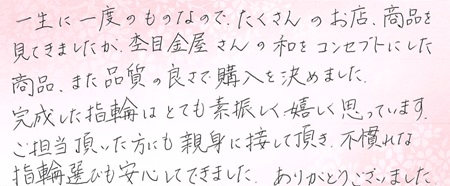 一生に一度のものなので、たくさんのお店、商品を
見てきましたが、杢目金屋さんの和をコンセプトにした
商品、また品質の良さで購入を決めました。
完成した指輪はとても素振しく嬉しく思っています。
ご担当頂いた方にも親身に接して頂き、不慣れな
指輪選びも安心してできました。ありがとうございました